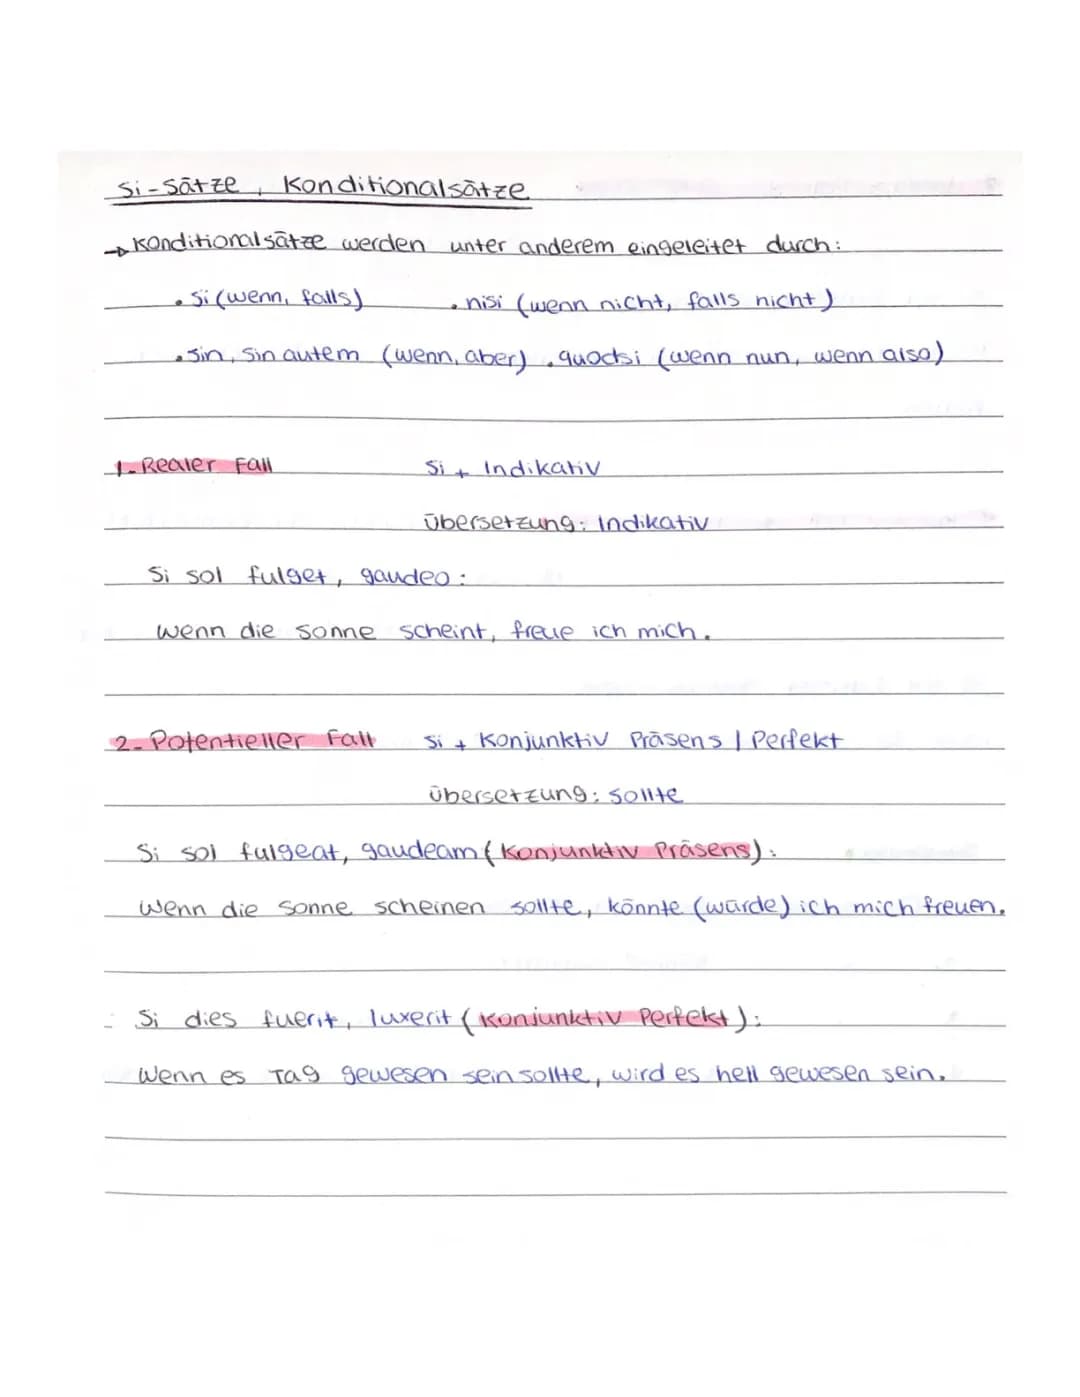 Si-Sätze, Konditionalsätze
→ Konditionalsätze werden unter anderem eingeleitet durch:
• Si (wenn, falls) • nisi (wenn nicht, falls nicht)
• Sin, Sin autem (wenn, aber) • quodsi (wenn nun, wenn also)
1. Realer Fall Si + Indikativ
Übersetzung: Indikativ
Si sol fulget, gaudeo:
Wenn die Sonne scheint, freue ich mich.
2. Potentieller Fall Si + Konjunktiv Präsens | Perfekt
Übersetzung: Sollte
Si sol fulgeat, gaudeam (Konjunktiv Präsens):
Wenn die Sonne scheinen sollte, könnte (würde) ich mich freuen.
Si dies fuerit, luxerit (Konjunktiv Perfekt):
Wenn es Tag gewesen sein sollte, wird es hell gewesen sein.